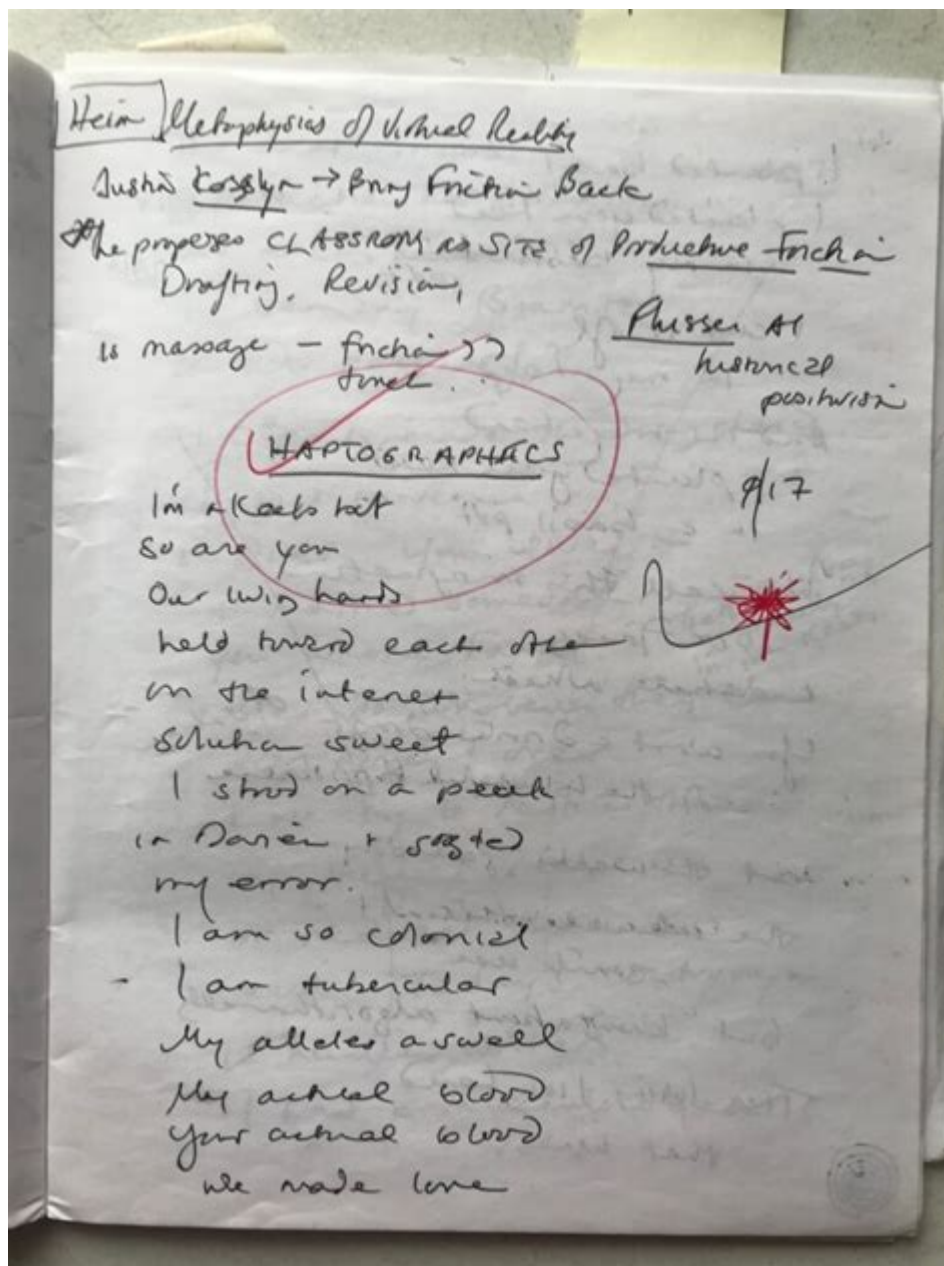 Heim Metaphysics of Virtual Reality
Justin Kosslyn → Bring Friction Back
* he proposes CLASSROOM as SITE of Productive Friction
Drafting, Revision,
Is massage — friction??
Flusser AI
touch...
historical
positivism
HAPTOGRAPHICS
9/17
I'm a Keats bot
So are you
Our living hands
held toward each other
on the internet
Solution sweet
I stood on a peak
in Darien +
my error.
I am so colonial
- I am tubercular
My alleles a swell
My actual blood
Your actual blood
we made love